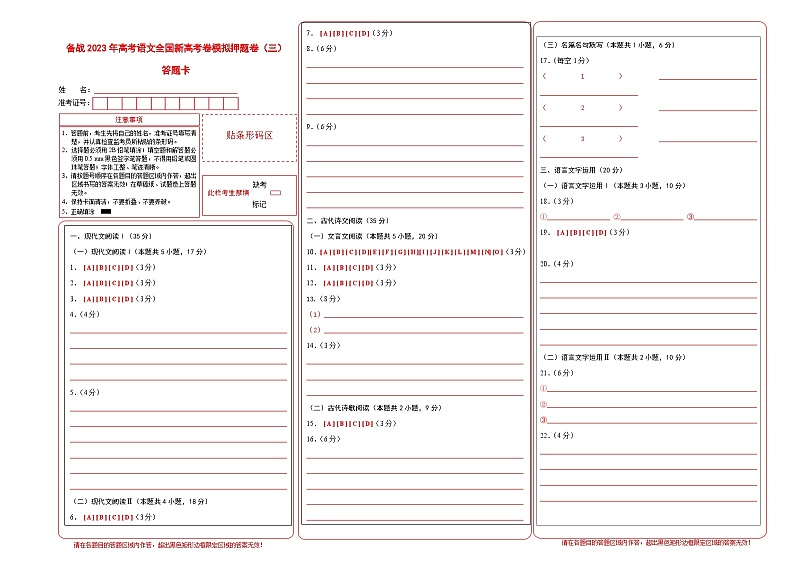 备战2023年高考语文全国新高考卷模拟押题卷（三）
答题卡
姓　名：
准考证号：
注意事项
1．答题前，考生先将自己的姓名，准考证号填写清
楚，并认真检查监考员所粘贴的条形码。
2．选择题必须用2B铅笔填涂；填空题和解答题必
须用0.5 mm黑色签字笔答题，不得用铅笔或圆
珠笔答题；字体工整、笔迹清晰。
3．请按题号顺序在各题目的答题区域内作答，超出
区域书写的答案无效；在草稿纸、试题卷上答题
无效。
4．保持卡面清洁，不要折叠、不要弄破。
5．正确填涂
贴条形码区
此栏考生禁填
缺考
标记
一、现代文阅读Ⅰ（35分）
（一）现代文阅读Ⅰ（本题共5小题，17分）
1．[A][B][C][D]（3分）
2．[A][B][C][D]（3分）
3．[A][B][C][D]（3分）
4．（4分）
5．（4分）
（二）现代文阅读Ⅱ（本题共4小题，18分）
6．[A][B][C][D]（3分）
请在各题目的答题区域内作答，超出黑色矩形边框限定区域的答案无效！
7．[A][B][C][D]（3分）
8．（6分）
9．（6分）
二、古代诗文阅读（35分）
（一）文言文阅读（本题共5小题，20分）
10．[A][B][C][D][E][F][G][H][I][J][K][L][M][N][O]（3分）
11．[A][B][C][D]（3分）
12．[A][B][C][D]（3分）
13．（8分）
（1）
（2）
14．（3分）
（二）古代诗歌阅读（本题共2小题，9分）
15．[A][B][C][D]（3分）
16．（6分）
（三）名篇名句默写（本题共1小题，6分）
17．（每空1分）
（　1　）
（　2　）
（　3　）
三、语言文字运用（20分）
（一）语言文字运用Ⅰ（本题共3小题，10分）
18．（3分）
①　②　③
19．[A][B][C][D]（3分）
20．（4分）
（二）语言文字运用Ⅱ（本题共2小题，10分）
21．（6分）
①
②
③
22．（4分）
请在各题目的答题区域内作答，超出黑色矩形边框限定区域的答案无效！